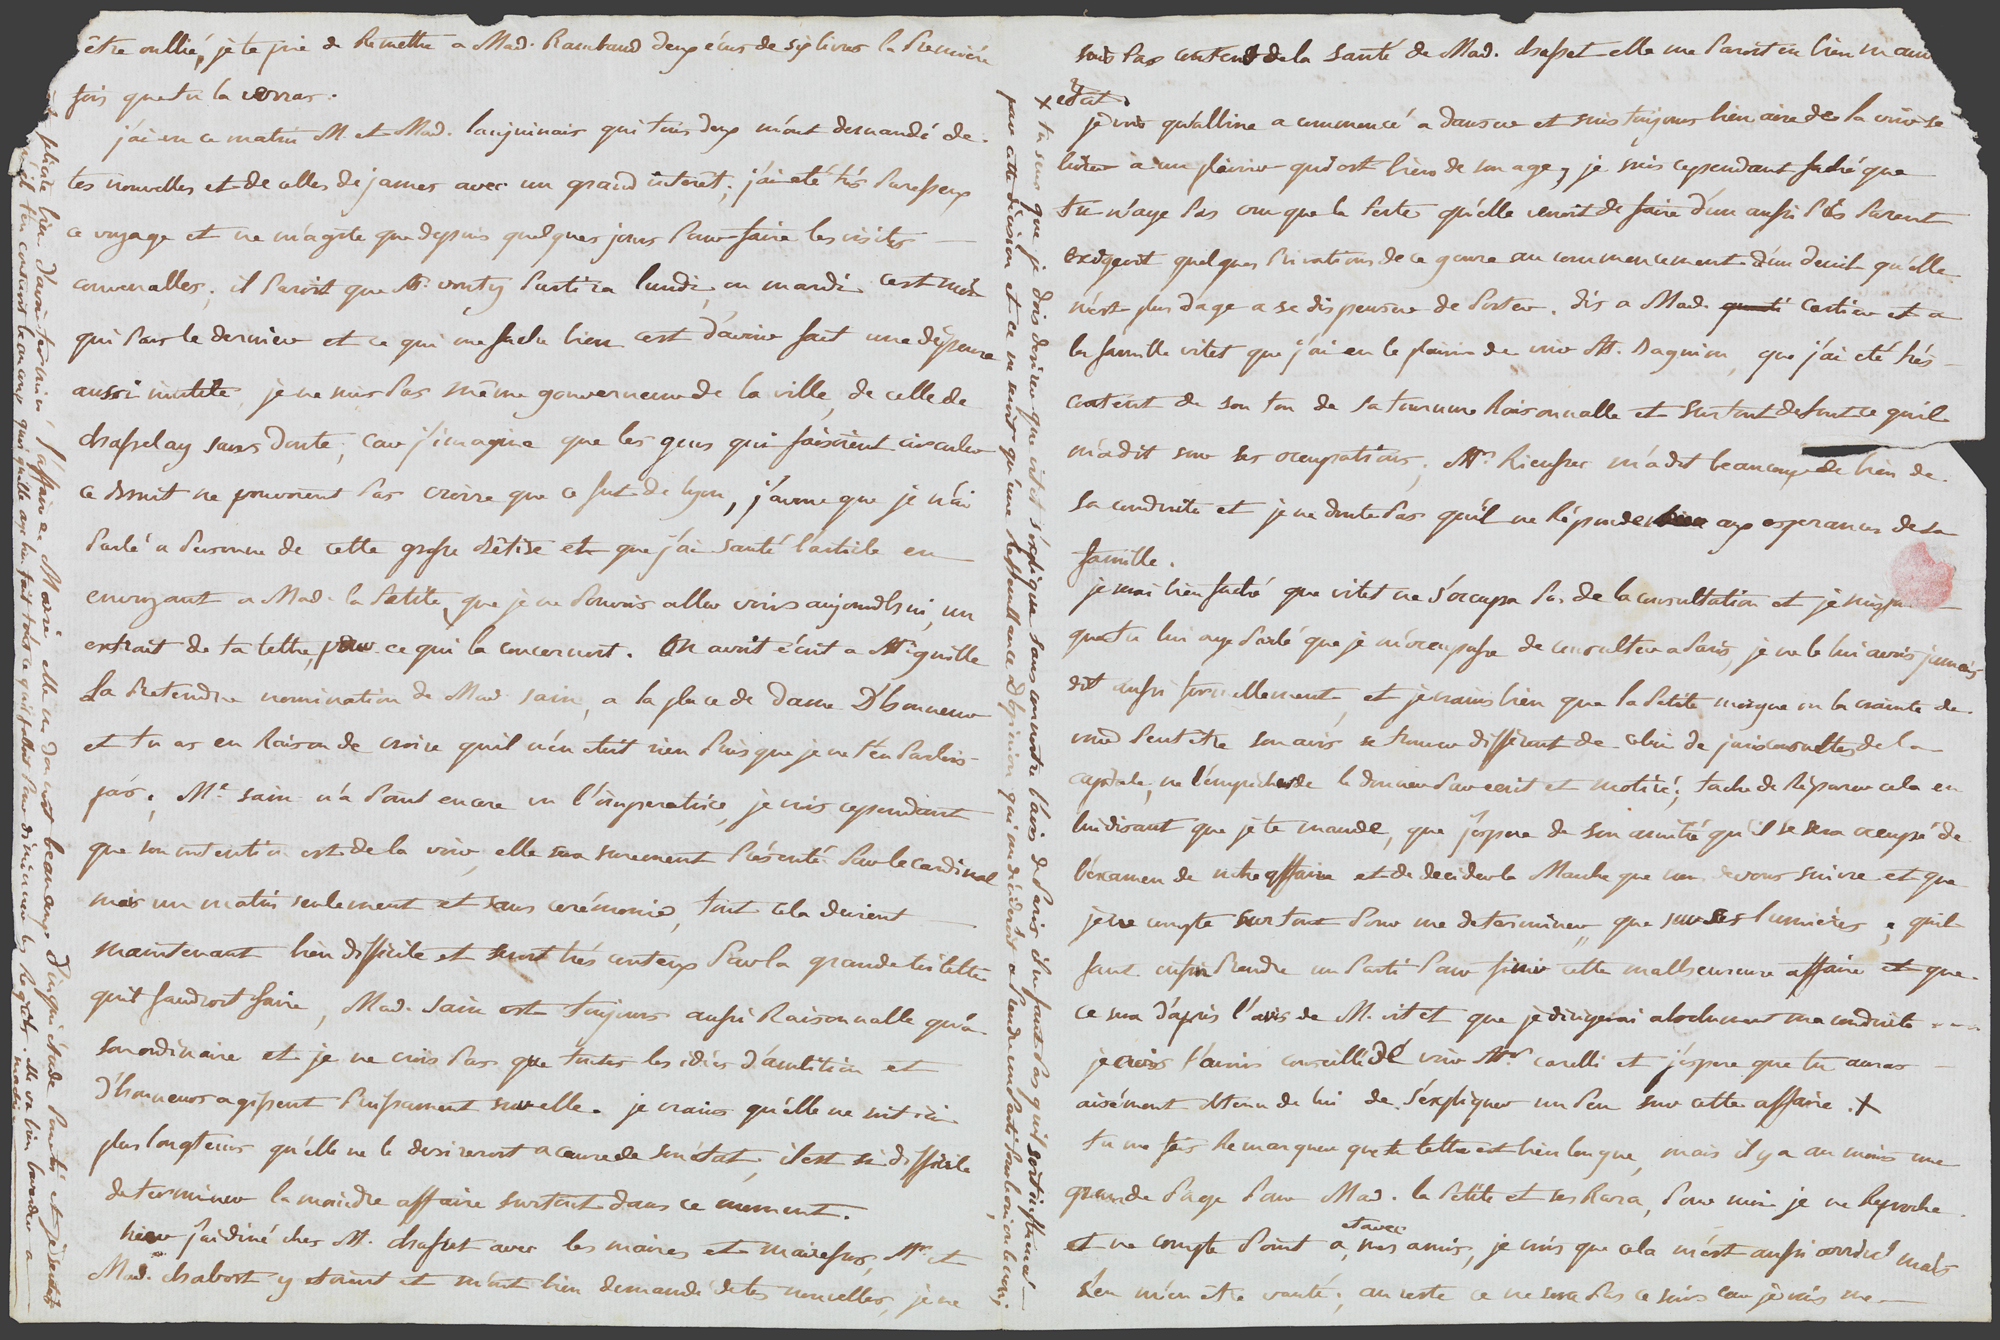 être oublié, je te prie de Remettre a Mad. Rambaud deux écus de six livres la Premiére
fois que tu la verras.
j'ai vu ce matin M. et Mad. lanjuinais qui tous deux m'ont demandé de
tes nouvelles et de celles de james avec un grand interêt; j'ai eté trés Paresseux
ce voyage et ne m'agite que depuis quelques jours Pour faire les visites
convenables; il Paroit que Mr. vouty Partira lundi ou mardi c'est moi
qui Pars le dernier et ce qui me fache bien c'est d'avoir fait une depense
aussi inutile, je ne suis Pas même gouverneur de la ville, de celle de
chasselay sans doute; car j'imagine que les gens qui faisoient circuler
ce bruit ne pouvoient Pas croire que ce fut de lyon, j'avoue que je n'ai
Parlé a Personne de cette grosse bêtise et que j'ai sauté l'article en
envoyant a Mad. la Petite, que je ne Pouvois aller voir aujourdhui, un
extrait de ta lettre, pour ce qui la concernoit. On avoit écrit a Mr. guille
La Pretendue nomination de Mad. sain, a la place de Dame D'honneur
et tu as eu Raison de croire quil n'en etoit rien Puisque je ne t'en Parlois
pas. Me. sain n'a Point encore vu l'imperatrice, je crois cependant
que son intention est de la voir, elle sera surement Présenté Par le cardinal
mais un matin seulement et sans cerémonie, tout cela devient
maintenant bien difficile et surtout trés couteux Par la grande toilette
quil faudroit faire, Mad. sain est toujours aussi Raisonnalle qu'a
son ordinaire et je ne crois Pas que toutes les idées d'ambition et
D'honneurs agissent Puissament sur elle. je crains qu'elle ne soit ici
plus longtems qu'elle ne le desireroit a cause de son état, il est si difficile
de terminer la moindre affaire surtout dans ce moment.
hier j'ai diné chez M. chasset avec les maires et mairesses, Mr. et
Mad. chabort y etoient et m'ont bien demandé de tes nouvelles, je ne
suis Pas content de la santé de Mad. chasset elle me Paroit en bien mauv
état.
je vois qu'alline a commencé a danser et suis toujours bien aise de la voir se
livrer à un plaisir qui est bien de son age, je suis cependant faché que
tu n'aye Pas cru que la Perte qu'elle venoit de faire d'un aussi Prés Parent
exigeoit quelques Privations de ce genre au commencement d'un deuil qu'elle
n'est plus d'age a se dispenser de Porter. dis a Mad. cartier et a
la famille vitet que j'ai eu le plaisir de voir M. Dagnion, que j'ai eté trés
content de son ton de sa tournure Raisonnalle et surtout de tout ce quil
m'a dit sur ses ocupations; Mr. Rieussec m'a dit beaucoup de bien de
sa conduite et je ne doute Pas qu'il ne Réponde aux esperances de sa
famille.
je suis bien faché que vitet ne s'occupa Pas de la consultation et
que tu lui aye Parlé que je m'occupasse de consulter a Paris, je ne le lui avois jamais
dit aussi formellement, et je crains bien que la Petite morgue ou la crainte de
voir Peut être son avis se trouver différent de celui de jurisconsultes de la
capitale, ne l'empêche de le donner Par ecrit et motivé; tache de Réparer cela en
lui disant que je te mande, que j'espere de son amitié qu'il se sera occupé de
l'examen de notre affaire et de decider la Marche que nous devons suivre et que
je ne compte surtout Pour me determiner que sur ses lumiéres, quil
faut enfin Prendre un Parti Pour finir cette malheureuse affaire et que
ce sera d'aprés l'avis de M. vitet que je dirigerai absolument ma conduite ...
je crois t'avoir conseillé de voir Mr. carelli et j'espere que tu auras
aisément obtenu de lui de s'expliquer un Peu sur cette affaire. X
tu me fais Remarquer que ta lettre est bien longue, mais il y a au moins une
grande Page Pour Mad. la Petite et ses Rosa, Pour moi je ne Reproche
et ne compte Point a et avec mes amis, je crois que cela m'est aussi
s'en m'en être vanté; au reste ce ne sera Pas ce soir car je vais me
X tu sens que je dois desirer que vitet s'explique sans connoitre l'avis de Paris il ne faut Pas quil soit influencé
par cette décision et ce ne seroit qu'une Ressemblance D'opinion qui me décideroit a Prendre un Parti